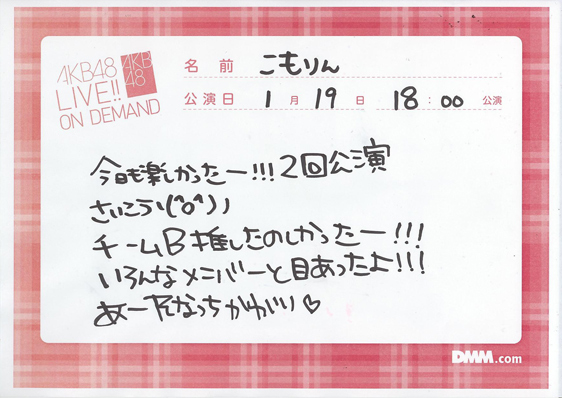 AKB48
LIVE!!
ON DEMAND
AKB
48
名前 こもりん
公演日 1月19日 18:00 公演
今日も楽しかったー!!!2回公演
さいこうヽ(^o^)ノ
チームB推したのしかったー!!!
いろんなメンバーと目あったよ!!!
あーなっちかわいい♡
DMM.com